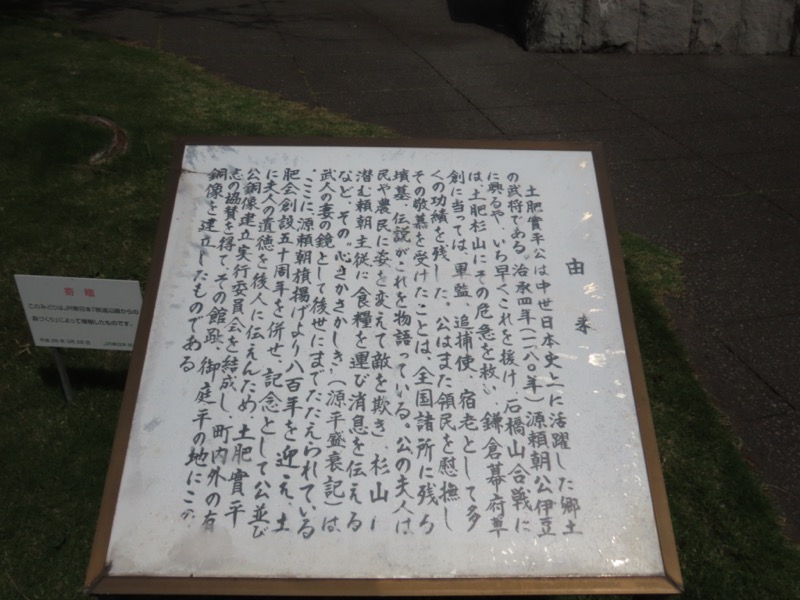 由来
土肥實平公は中世日本史上に活躍した郷土
の武将である。治承四年(一一八〇年)源頼朝公伊豆
に興るや、いち早くこれを援け、石橋山合戦に
は、土肥杉山にその危急を救い、鎌倉幕府草
創に当っては、軍監、追捕使、宿老として多
くの功績を残した。公はまた領民を慰撫し
その敬慕を受けたことは、全国諸所に残る
墳墓、伝説がこれを物語っている。公の夫人は
民や農民に姿を変えて敵を欺き、杉山に
潜む頼朝主従に食糧を運び消息を伝える
など、その“心さかさかしき”(源平盛衰記)は、
武人の妻の鏡として後世にまでたたえられている
ここに源頼朝旗揚げより八百年を迎え、土
肥会創設五十周年を併せ、記念として公並び
に夫人の遺徳を後人に伝えんため、土肥實平
公銅像建立実行委員会を結成し、町内外の有
志の協賛を得て、その館趾、御庭平の地にこの
銅像を建立したものである
寄贈
このみどりはJR東日本「鉄道沿線からの
森づくり」によって植樹したものです。